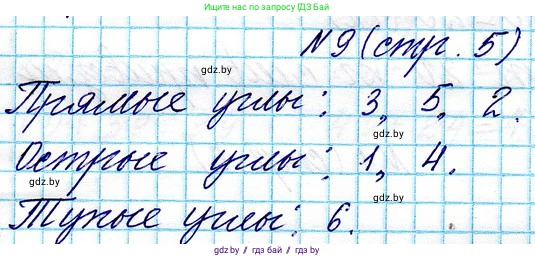 Ищите нас по запросу ГДЗ Бай
№9 (стр. 5)
gdz.by
Прямые углы: 3, 5, 2.
gdz.by
Острые углы: 1, 4.
gdz.by
gdz.by
Тупые углы: 6.
gdz.by / гдз бай / gdz.by